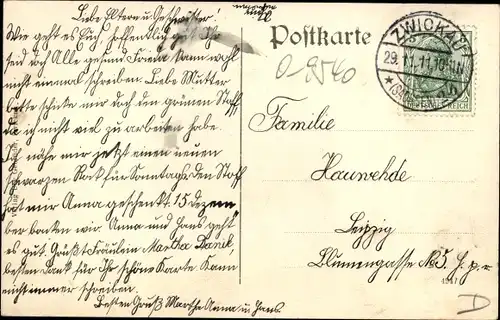 Liebe Eltern u. Geschwister!
Wie geht es Euch, hoffentlich gut. Ihr
seid doch Alle gesund. Frieda kann wohl
nicht einmal schreiben. Liebe Mutter
bitte schicke mir doch den grünen Stoff
da ich nicht viel zu arbeiten habe.
Ich nähe mir jetzt einen neuen
schwarzen Rock für Sonntags den Stoff
hat mir Anna geschenkt. 15 Dezem
ber backen wir. Anna und Hans geht
es gut. Grüßt Fräulein Martha Daniel,
besten Dank für Ihr schöne Karte. Kann
nicht immer schreiben.
Besten Gruß Marthe Anna u. Hans.
Postkarte
ZWICKAU
29.11.11.
(SACHSEN)
0-9540
Familie
Hauwehde
Leipzig
Blumengasse No 5. H. p. r.
D